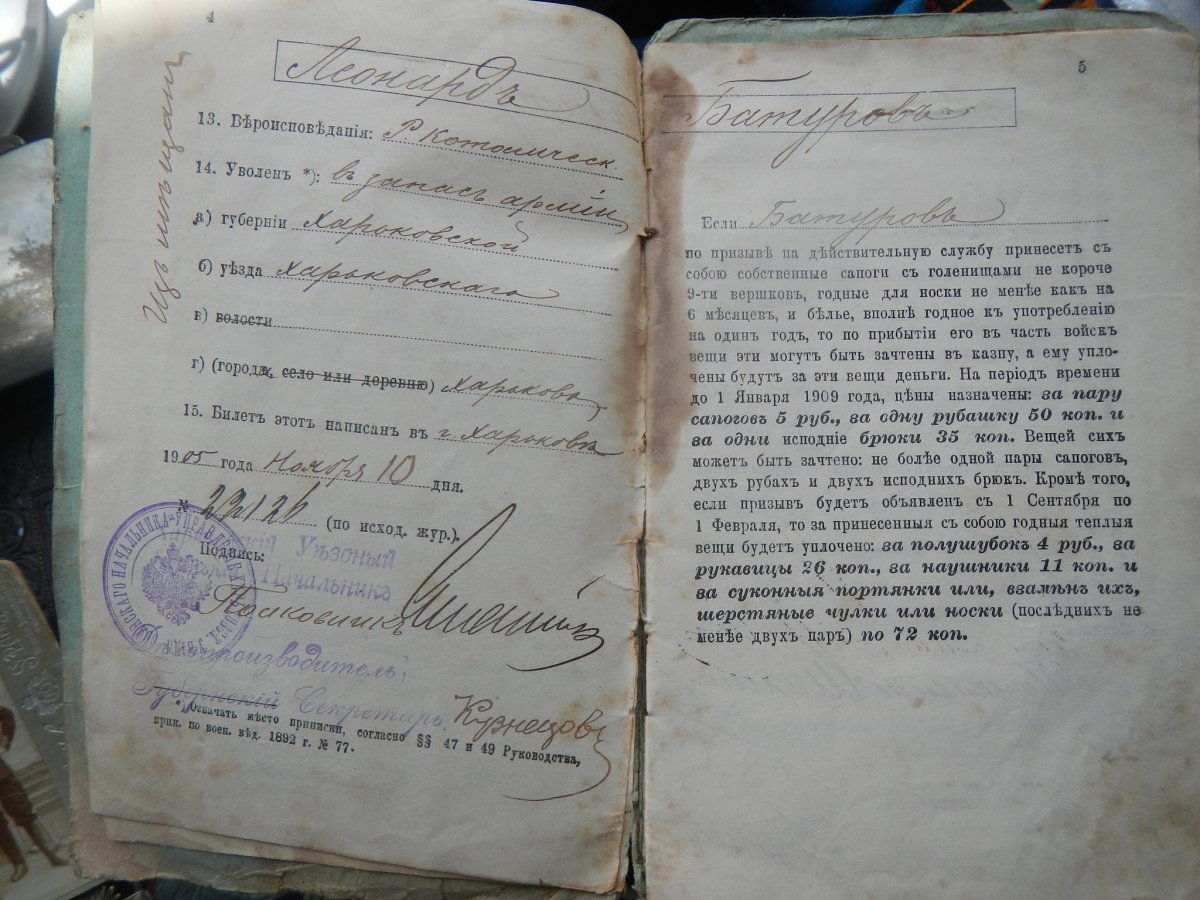 4
Леонардъ
Изъ мѣщанъ
13. Вѣроисповѣданія: Р. Католическ.
14. Уволенъ *): въ запасъ арміи
а) губерніи Харьковской
б) уѣзда Харьковскаго
в) волости
г) (городъ, село или деревню) Харьковъ
15. Билетъ этотъ написанъ въ г. Харьковѣ
1905 года Ноября 10 дня.
№ 22126 (по исход. жур.).
Уѣздный
Подпись:
Начальникъ
Полковникъ
Дѣлопроизводитель:
Губернскій Секретарь Кузнецовъ
*) Означать мѣсто приписки, согласно §§ 47 и 49 Руководства,
прик. по воен. вѣд. 1892 г. № 77.
5
Батуровъ
Если Батуровъ
по призывѣ на дѣйствительную службу принесетъ съ
собою собственные сапоги съ голенищами не короче
9-ти вершковъ, годные для носки не менѣе какъ на
6 мѣсяцевъ, и бѣлье, вполнѣ годное къ употребленію
на одинъ годъ, то по прибытіи его въ часть войскъ
вещи эти могутъ быть зачтены въ казну, а ему упло-
чены будутъ за эти вещи деньги. На періодъ времени
до 1 Января 1909 года, цѣны назначены: за пару
сапоговъ 5 руб., за одну рубашку 50 коп. и
за одни исподніе брюки 35 коп. Вещей сихъ
можетъ быть зачтено: не болѣе одной пары сапоговъ,
двухъ рубахъ и двухъ исподнихъ брюкъ. Кромѣ того,
если призывъ будетъ объявленъ съ 1 Сентября по
1 Февраля, то за принесенныя съ собою годныя теплыя
вещи будетъ уплочено: за полушубокъ 4 руб., за
рукавицы 26 коп., за наушники 11 коп. и
за суконныя портянки или, взамѣнъ ихъ,
шерстяные чулки или носки (послѣднихъ не
менѣе двухъ паръ) по 72 коп.